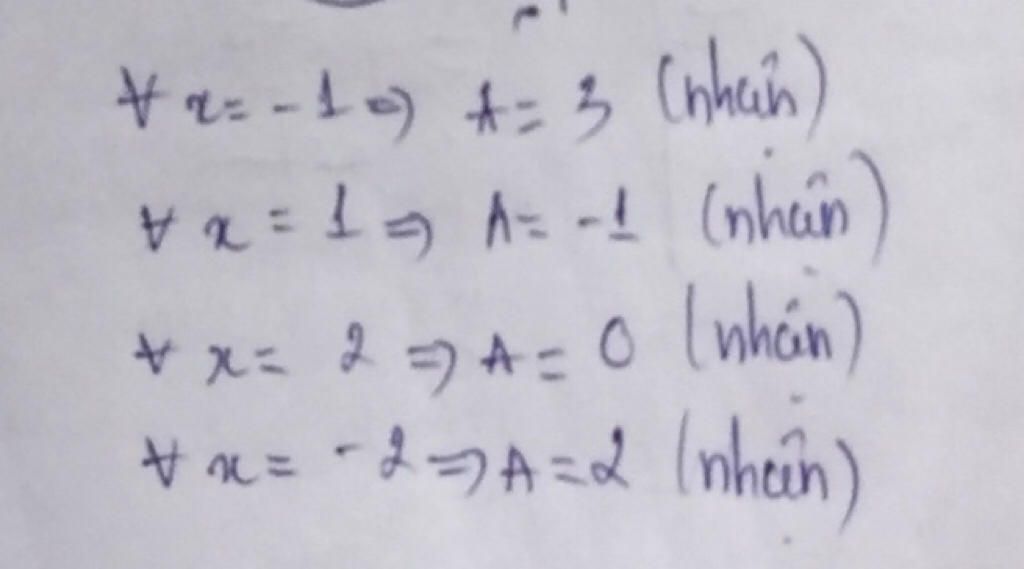 ∀ x = -1 => A = 3 (nhận)
∀ x = 1 => A = -1 (nhận)
∀ x = 2 => A = 0 (nhận)
∀ x = -2 => A = 2 (nhận)